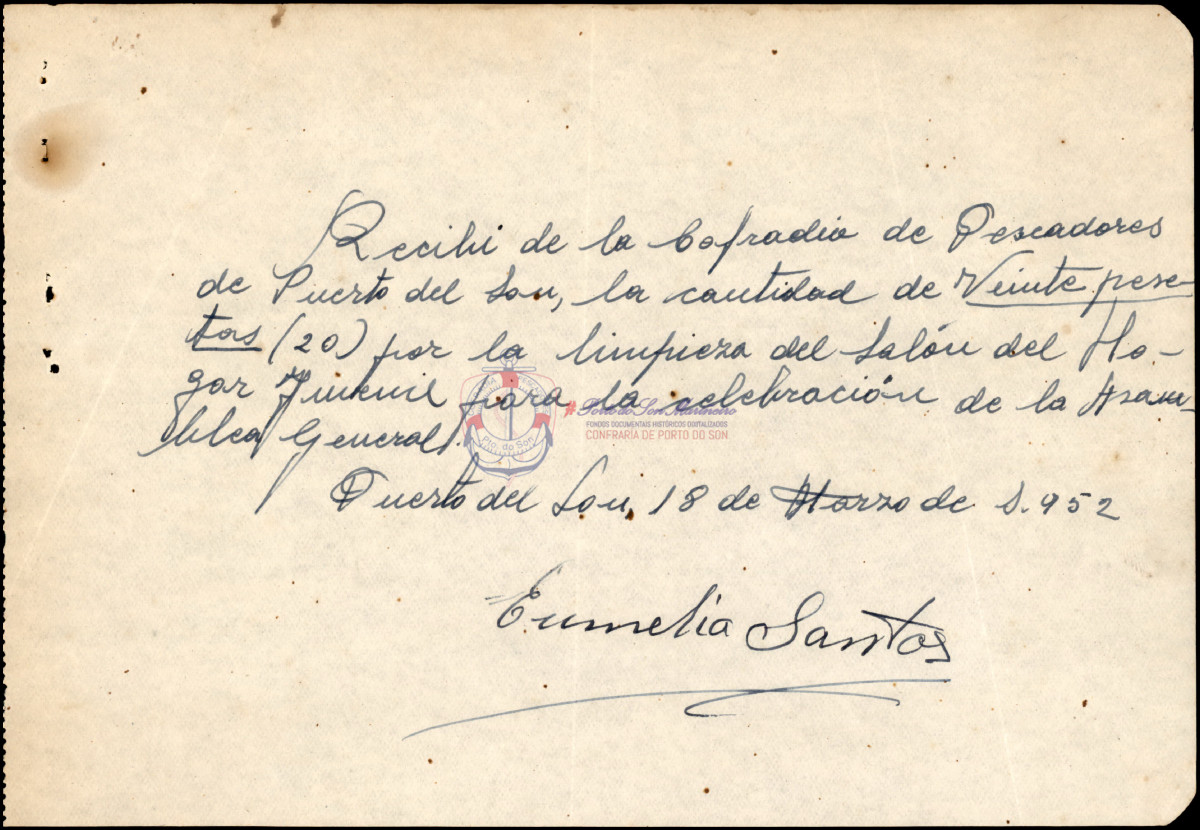 Recibi de la Cofradia de Pescadores
de Puerto del Son, la cantidad de Veinte pese-
tas (20) por la limpieza del salón del Ho-
gar Juvenil para la celebración de la Asam-
blea General.
Puerto del Son, 18 de Marzo de 1.952
Eumelia Santos
Pto. do Son
#Porto do Son Mariñeiro
FONDOS DOCUMENTAIS HISTÓRICOS DIXITALIZADOS
CONFRARÍA DE PORTO DO SON